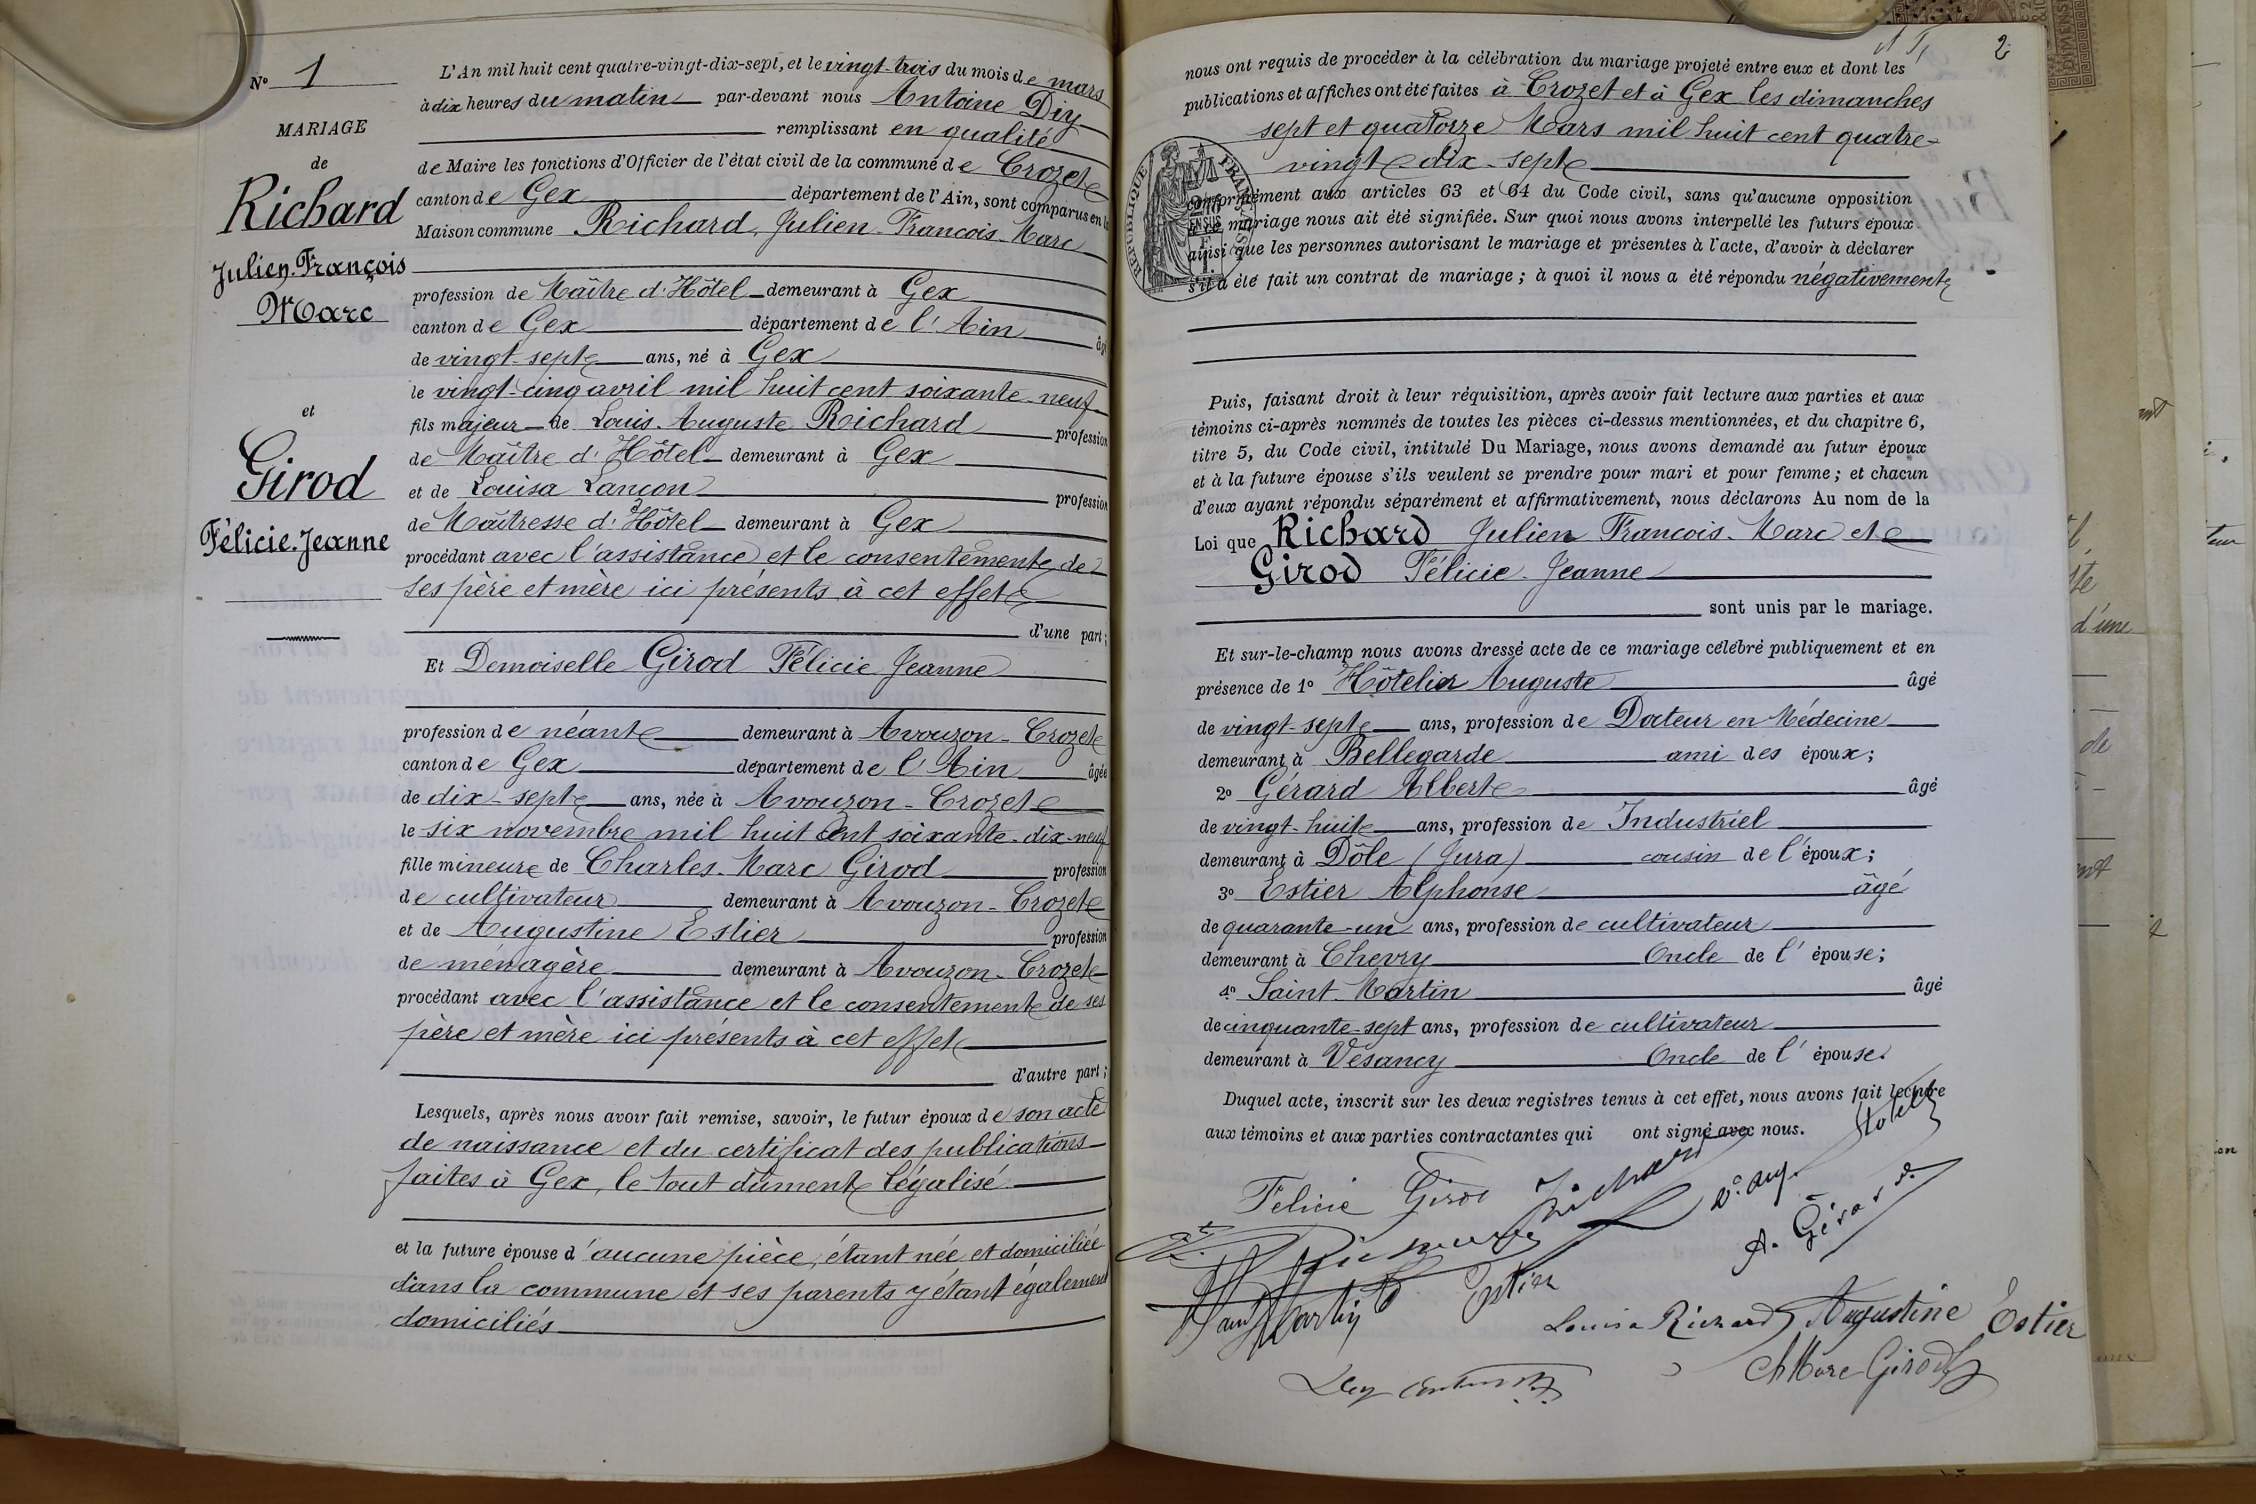 N° 1
MARIAGE
de
Richard
Julien-François
Marc
et
Girod
Félicie-Jeanne
L'An mil huit cent quatre-vingt-dix-sept, et le vingt-trois du mois de mars
à dix heures du matin par-devant nous Antoine Diy
remplissant en qualité
de Maire les fonctions d'Officier de l'état civil de la commune de Crozet
canton de Gex département de l'Ain, sont comparus en la
Maison commune Richard, Julien-François-Marc
profession de Maître d'Hôtel demeurant à Gex
canton de Gex département de l'Ain âgé
de vingt-sept ans, né à Gex
le vingt-cinq avril mil huit cent soixante-neuf
fils majeur de Louis-Auguste Richard profession
de Maître d'Hôtel demeurant à Gex
et de Louisa Lançon profession
de Maîtresse d'Hôtel demeurant à Gex
procédant avec l'assistance et le consentement de
ses père et mère ici présents à cet effet
d'une part;
Et Demoiselle Girod Félicie Jeanne
profession de néant demeurant à Avouzon-Crozet
canton de Gex département de l'Ain âgée
de dix-sept ans, née à Avouzon-Crozet
le six novembre mil huit cent soixante-dix-neuf
fille mineure de Charles-Marc Girod profession
de cultivateur demeurant à Avouzon-Crozet
et de Augustine Estier profession
de ménagère demeurant à Avouzon-Crozet
procédant avec l'assistance et le consentement de ses
père et mère ici présents à cet effet
d'autre part;
Lesquels, après nous avoir fait remise, savoir, le futur époux de son acte
de naissance et du certificat des publications
faites à Gex, le tout dûment légalisé
et la future épouse d'aucune pièce, étant née et domiciliée
dans la commune et ses parents y étant également
domiciliés
2
nous ont requis de procéder à la célébration du mariage projeté entre eux et dont les
publications et affiches ont été faites à Crozet et à Gex les dimanches
sept et quatorze Mars mil huit cent quatre-
vingt-dix-sept
RÉPUBLIQUE FRANÇAISE
conformément aux articles 63 et 64 du Code civil, sans qu'aucune opposition
à ce mariage nous ait été signifiée. Sur quoi nous avons interpellé les futurs époux
ainsi que les personnes autorisant le mariage et présentes à l'acte, d'avoir à déclarer
s'il a été fait un contrat de mariage; à quoi il nous a été répondu négativement.
Puis, faisant droit à leur réquisition, après avoir fait lecture aux parties et aux
témoins ci-après nommés de toutes les pièces ci-dessus mentionnées, et du chapitre 6,
titre 5, du Code civil, intitulé Du Mariage, nous avons demandé au futur époux
et à la future épouse s'ils veulent se prendre pour mari et pour femme; et chacun
d'eux ayant répondu séparément et affirmativement, nous déclarons Au nom de la
Loi que Richard Julien François-Marc et
Girod Félicie-Jeanne
sont unis par le mariage.
Et sur-le-champ nous avons dressé acte de ce mariage célébré publiquement et en
présence de 1° Hôtelier Auguste âgé
de vingt-sept ans, profession de Docteur en Médecine
demeurant à Bellegarde ami des époux;
2° Gérard Albert âgé
de vingt-huit ans, profession de Industriel
demeurant à Dôle (Jura) cousin de l'époux;
3° Estier Alphonse âgé
de quarante-un ans, profession de cultivateur
demeurant à Chevry Oncle de l'épouse;
4° Saint-Martin âgé
de cinquante-sept ans, profession de cultivateur
demeurant à Vesancy Oncle de l'épouse.
Duquel acte, inscrit sur les deux registres tenus à cet effet, nous avons fait lecture
aux témoins et aux parties contractantes qui ont signé avec nous.
Félicie Girod J. Richard Dr Aug.
A. Gérard
Estier
Martin
Louisa Richard Augustine Estier
Ch Marc Girod